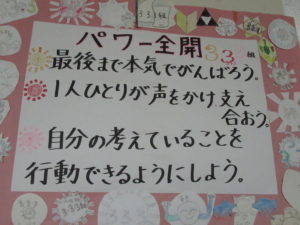 パワー全開33組
最後まで本気でがんばろう。
1人ひとりが声をかけ支え
合おう。
自分の考えていることを
行動できるようにしよう。